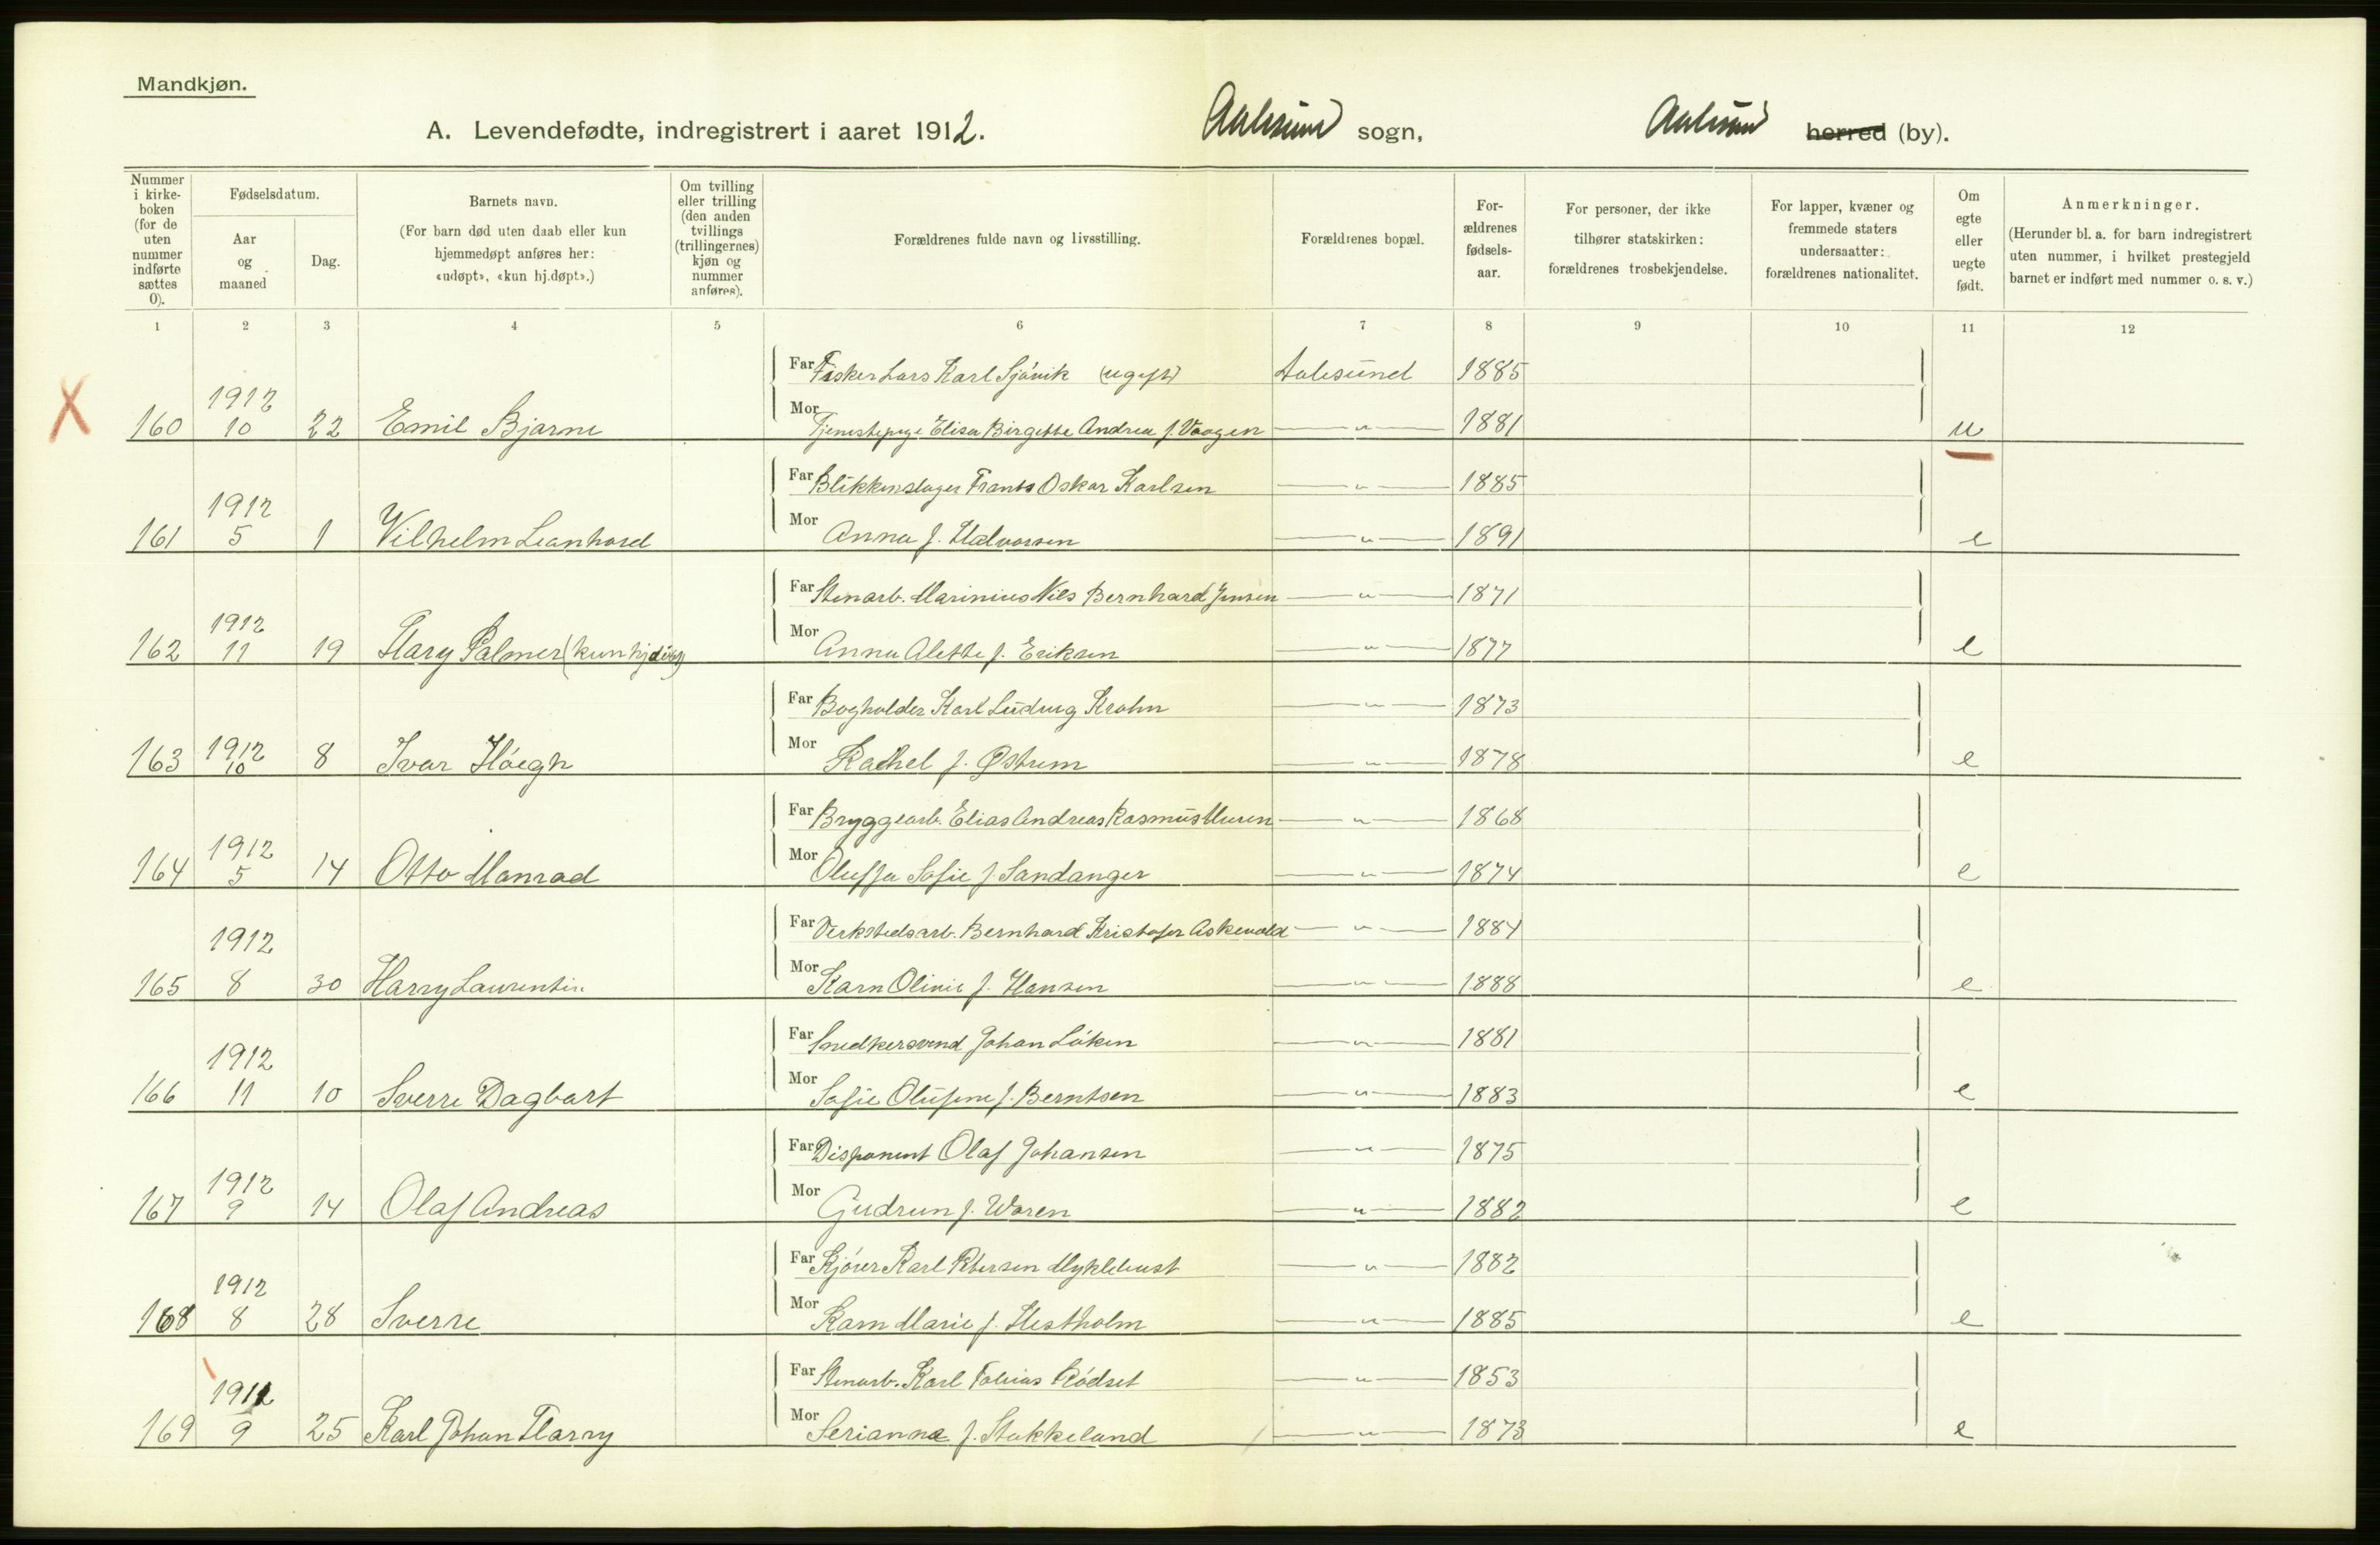 Mandkjøn.
A. Levendefødte, indregistrert i aaret 1912. Aalesund sogn, Aalesund herred (by).
Nummer i kirke-boken (for de uten nummer indførte sættes 0).
Fødselsdatum.
Aar og maaned
Dag.
Barnets navn.
(For barn død uten daab eller kun hjemmedøpt anføres her: «udøpt», «kun hj.døpt».)
Om tvilling eller trilling (den anden tvillings (trillingernes) kjøn og nummer anføres).
Forældrenes fulde navn og livsstilling.
Forældrenes bopæl.
For-ældrenes fødsels-aar.
For personer, der ikke tilhører statskirken: forældrenes trosbekjendelse.
For lapper, kvæner og fremmede staters undersaatter: forældrenes nationalitet.
Om egte eller uegte født.
Anmerkninger.
(Herunder bl. a. for barn indregistrert uten nummer, i hvilket prestegjeld barnet er indført med nummer o. s. v.)
1 2 3 4 5 6 7 8 9 10 11 12
Far Fisker Lars Karl Sjóvik (ugift) Aalesund 1885
X 160 1912 10 22 Emil Bjarne Mor Tjenestepige Elisa Birgitte Andrea f. Vaagen — " — 1881 u
Far Blikkenslager Frants Oskar Karlsen — " — 1885
161 1912 5 1 Vilhelm Leonhard Mor Anna f. Halvorsen — " — 1891 e
Far Stenarb. Marinius Nils Bernhard Jensen — " — 1871
162 1912 11 19 Hary Palmer (kun hjdöbt) Mor Anna Alette f. Eriksen — " — 1877 e
Far Bogholder Karl Ludvig Krohn — " — 1873
163 1912 10 8 Ivar Höegh Mor Rachel f. Østrem — " — 1878 e
Far Bryggearb. Elias Andreas Rasmus Muren — " — 1868
164 1912 5 14 Otto Monrad Mor Oluffa Sofie f. Sandanger — " — 1874 e
Far Verkstedsarb. Bernhard Kristofer Askevold — " — 1884
165 1912 8 30 Harry Laurentin Mor Karn Olivie f. Hansen — " — 1888 e
Far Snedkersvend Johan Löken — " — 1881
166 1912 11 10 Sverre Dagbart Mor Sofie Olufine f. Berntsen — " — 1883 e
Far Disponent Olaf Johansen — " — 1875
167 1912 9 14 Olaf Andreas Mor Gudrun f. Waren — " — 1882 e
Far Kjörer Karl Petersen Myklebust — " — 1882
168 1912 8 28 Sverre Mor Karn Marie f. Hestholm — " — 1885 e
Far Stenarb. Karl Tobias Rödset — " — 1853
169 1911 9 25 Karl Johan Harry Mor Serianna f. Stokkeland — " — 1873 e